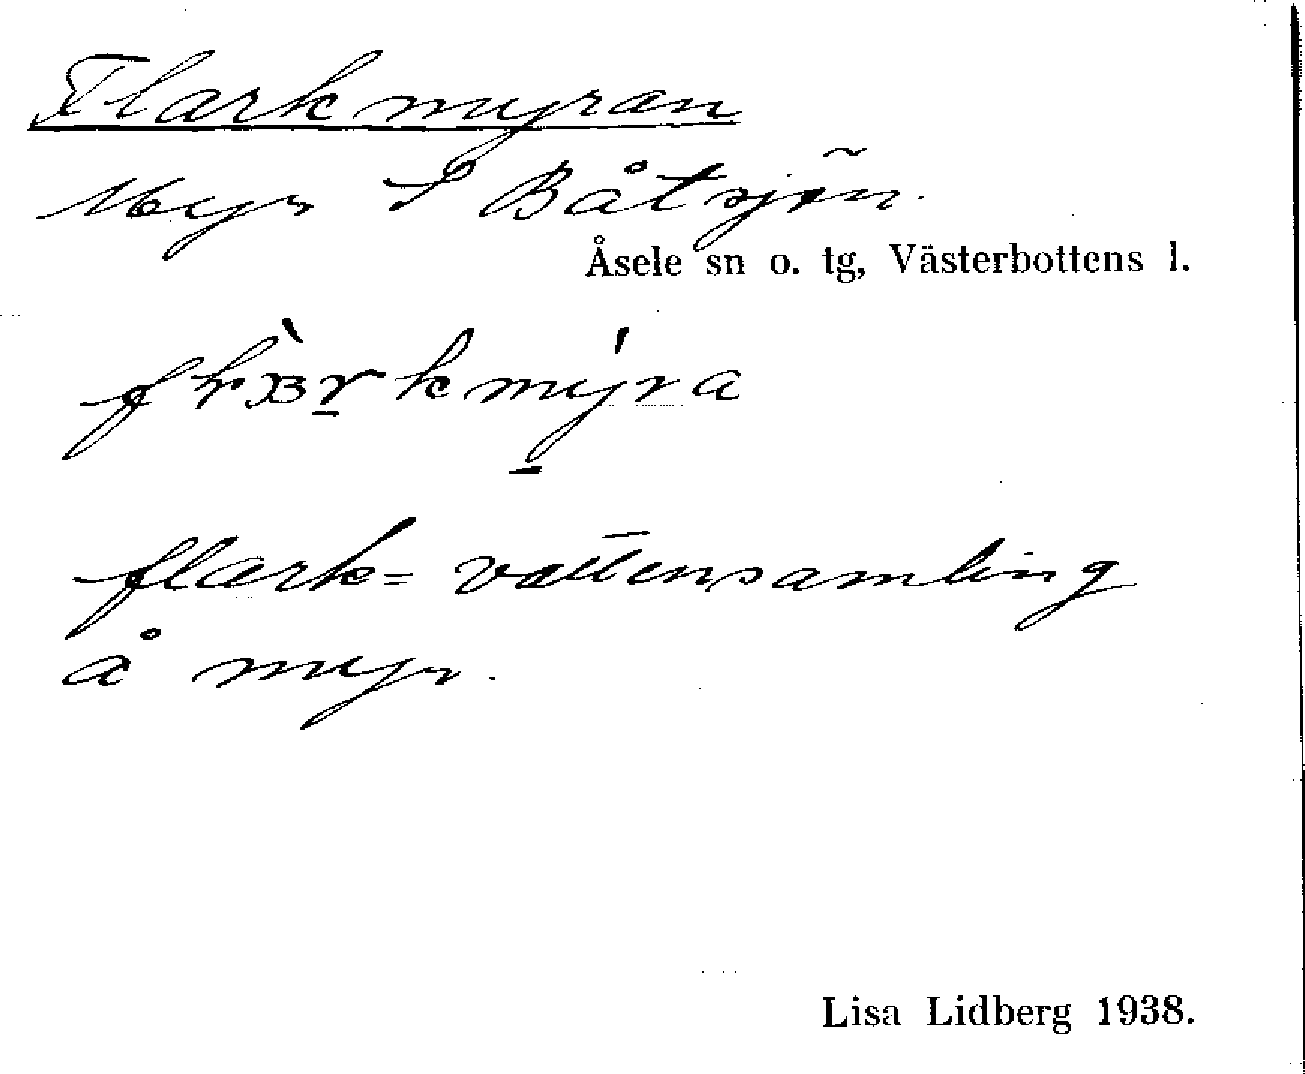 Flarkmyran
Myr S Båtsjön.
Åsele sn o. tg, Västerbottens l.
flark = vattensamling
å myr.
Lisa Lidberg 1938.